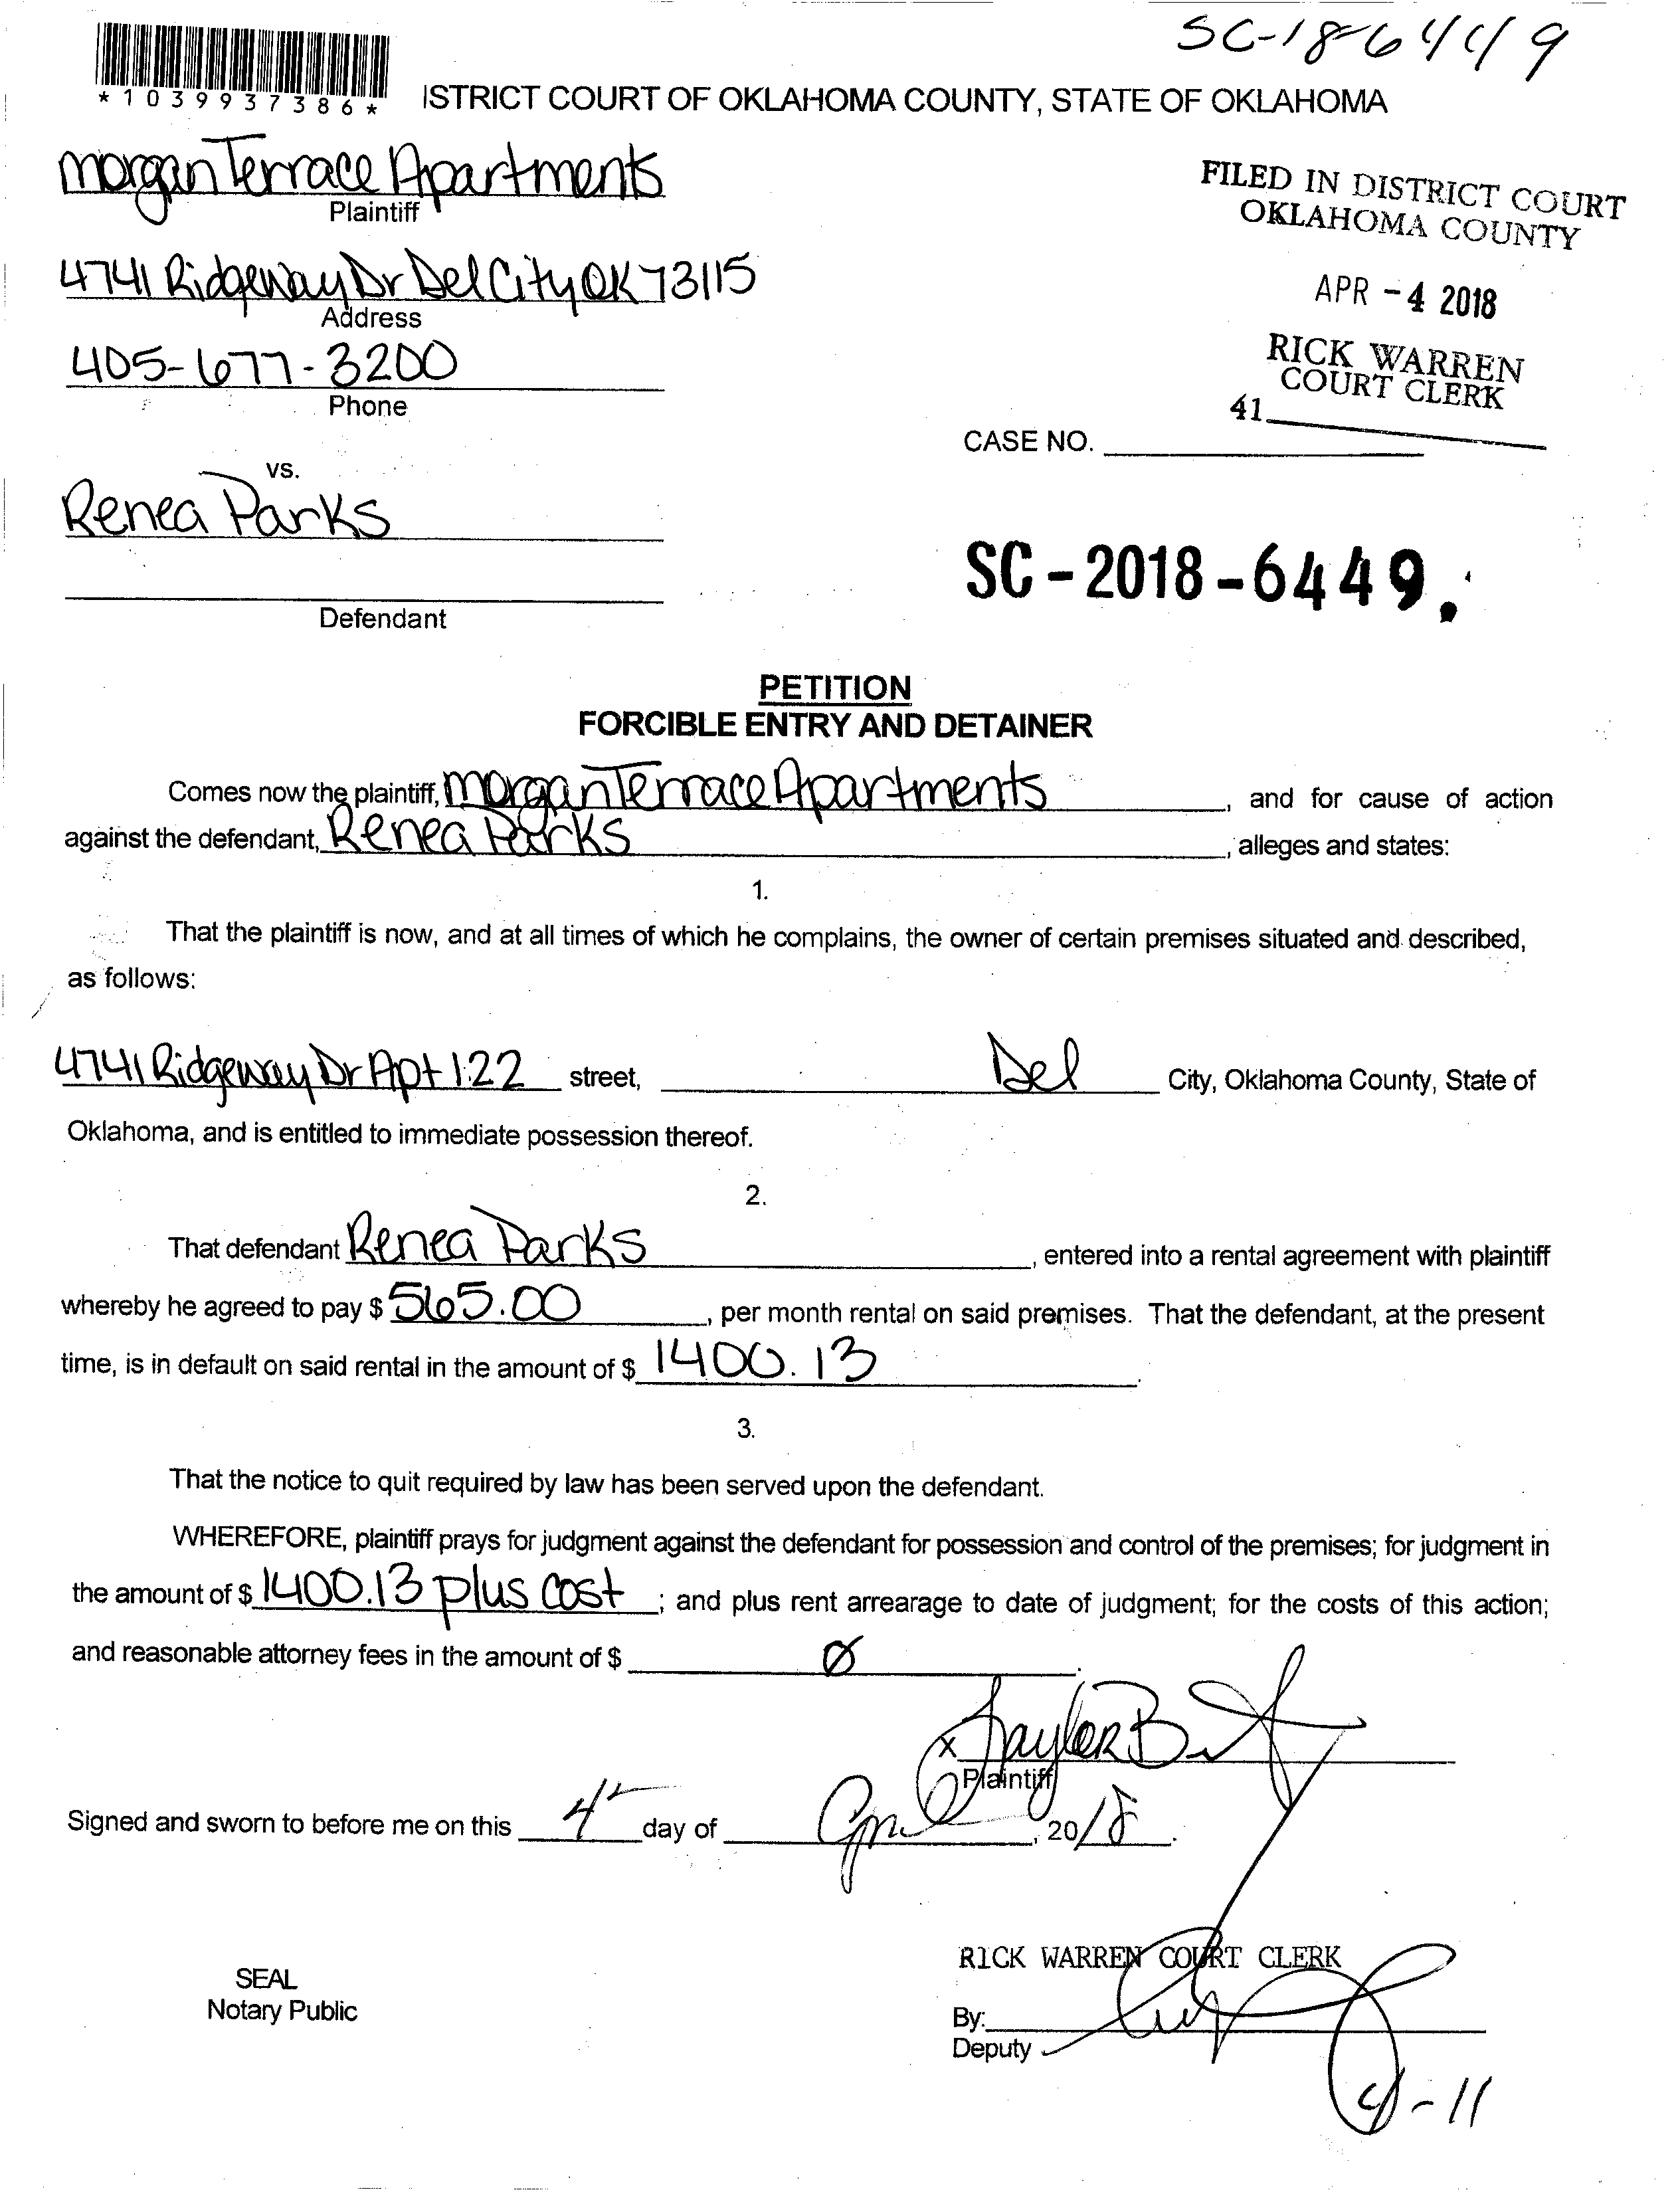 SC-18-6449
*1039937386*
ISTRICT COURT OF OKLAHOMA COUNTY, STATE OF OKLAHOMA
Morgan Terrace Apartments
Plaintiff
FILED IN DISTRICT COURT
OKLAHOMA COUNTY
4741 Ridgeway Dr Del City OK 73115
Address
APR -4 2018
405-677-3200
Phone
RICK WARREN
COURT CLERK
41
CASE NO.
vs.
Renea Parks
Defendant
SC-2018-6449
PETITION
FORCIBLE ENTRY AND DETAINER
Comes now the plaintiff, Morgan Terrace Apartments, and for cause of action
against the defendant, Renea Parks, alleges and states:
1.
That the plaintiff is now, and at all times of which he complains, the owner of certain premises situated and described,
as follows:
4741 Ridgeway Dr Apt 122 street, Del City, Oklahoma County, State of
Oklahoma, and is entitled to immediate possession thereof.
2.
That defendant Renea Parks, entered into a rental agreement with plaintiff
whereby he agreed to pay $ 565.00, per month rental on said premises. That the defendant, at the present
time, is in default on said rental in the amount of $ 1400.13.
3.
That the notice to quit required by law has been served upon the defendant.
WHEREFORE, plaintiff prays for judgment against the defendant for possession and control of the premises; for judgment in
the amount of $ 1400.13 plus cost; and plus rent arrearage to date of judgment; for the costs of this action;
and reasonable attorney fees in the amount of $ Ø.
x Tayler
Plaintiff
Signed and sworn to before me on this 4 day of April, 2018.
RICK WARREN COURT CLERK
SEAL
Notary Public
By:
Deputy
4-11